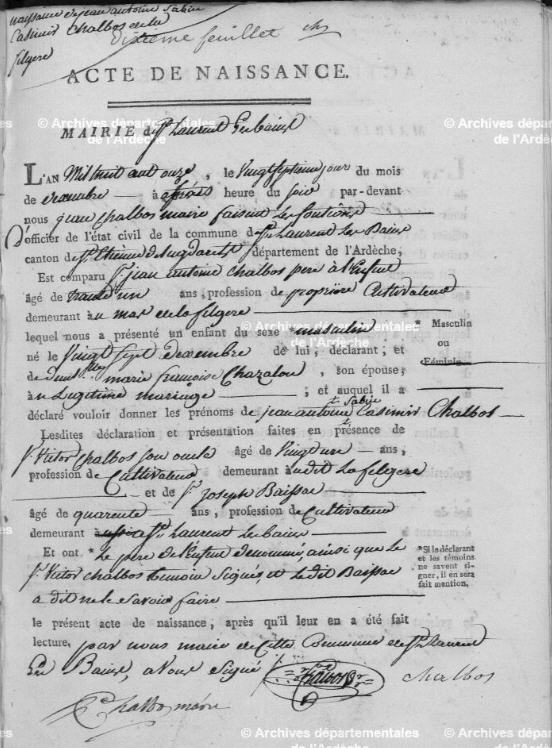 naissance de jean antoine Sabin
Casimir Chalbos de la
felgere
Sixième feuillet
ACTE DE NAISSANCE.
MAIRIE de St Laurent les bains
L'AN Mil huit cent onze, le Vingt septieme jour du mois
de decembre à trois heure du soir par-devant
nous jean Chalbos maire faisant les fonctions
d'officier de l'état civil de la commune de St Laurent les Bains
canton de St Etienne de Lugdarest département de l'Ardèche;
Est comparu Sr jean Antoine Chalbos pere à l'enfant
âgé de trente un ans, profession de propriere Cultivateur
demeurant au mas de la felgere
lequel nous a présenté un enfant du sexe * masculin
* Masculin
ou
Féminin
né le Vingt Sept decembre de lui, déclarant; et
de marie francoise Chazalon, son épouse;
en Legitime mariage; et auquel il a
déclaré vouloir donner les prénoms de jean antoine Sabin Casimir Chalbos
Lesdites déclaration et présentation faites en présence de
Sr Victor Chalbos son oncle âgé de Vingt un ans,
profession de Cultivateur demeurant audit La felgere
et de Sr joseph Baissac
âgé de quarente ans, profession de Cultivateur
demeurant à St Laurent les bains
Et ont * Le pere de l'enfant denommé, ainsi que le
Sr Victor Chalbos temoin Signés, et le dit Baissac
a dit ne le Savoir faire
* Si la déclarant
et les témoins
ne savent si-
gner, il en sera
fait mention.
le présent acte de naissance, après qu'il leur en a été fait
lecture, par nous maire de Cette Commune de St Laurent
Les Bains, avons Signé
Chalbos Chalbos
Chalbos maire
© Archives départementales
de l'Ardèche